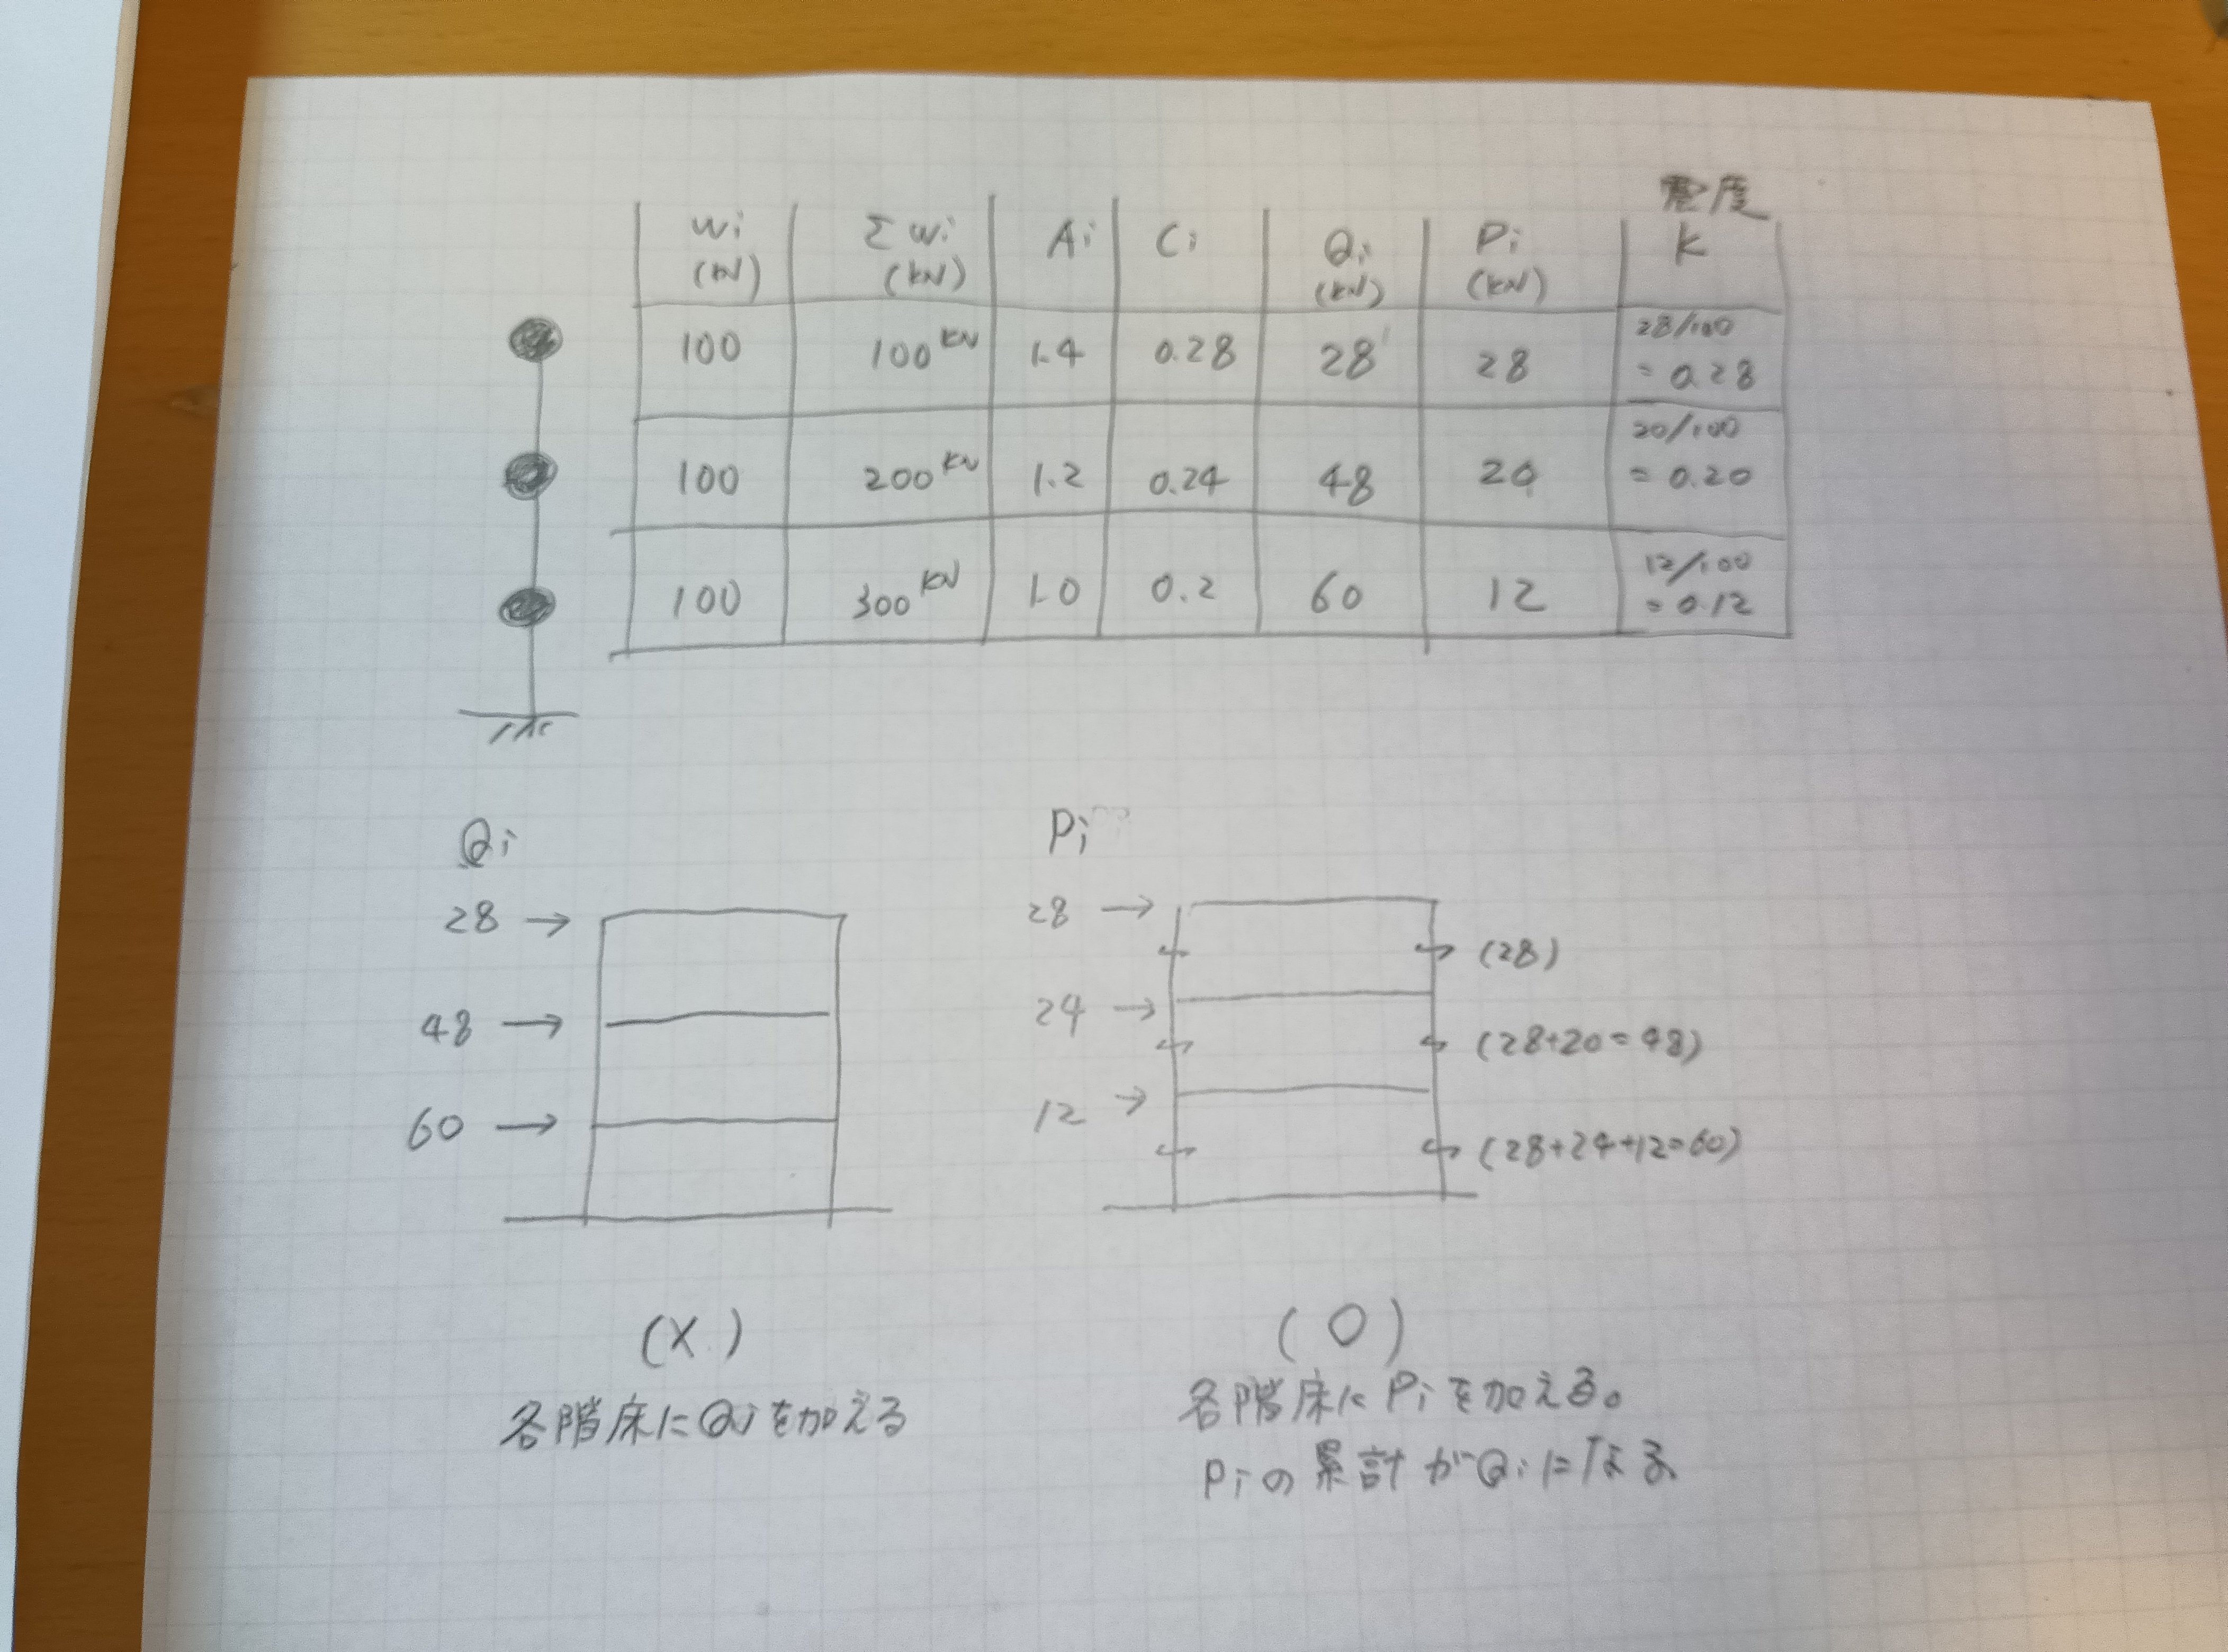 震度
wi Σwi Ai Ci Qi Pi K
(kN) (kN) (kN) (kN)
100 100kN 1.4 0.28 28 28 28/100 = 0.28
100 200kN 1.2 0.24 48 20 20/100 = 0.20
100 300kN 1.0 0.2 60 12 12/100 = 0.12
Qi
28 →
48 →
60 →
(×)
各階床にQiを加える
Pi
28 → (28)
24 → (28+20=48)
12 → (28+24+12=60)
(○)
各階床にPiを加える。
Piの累計がQiになる